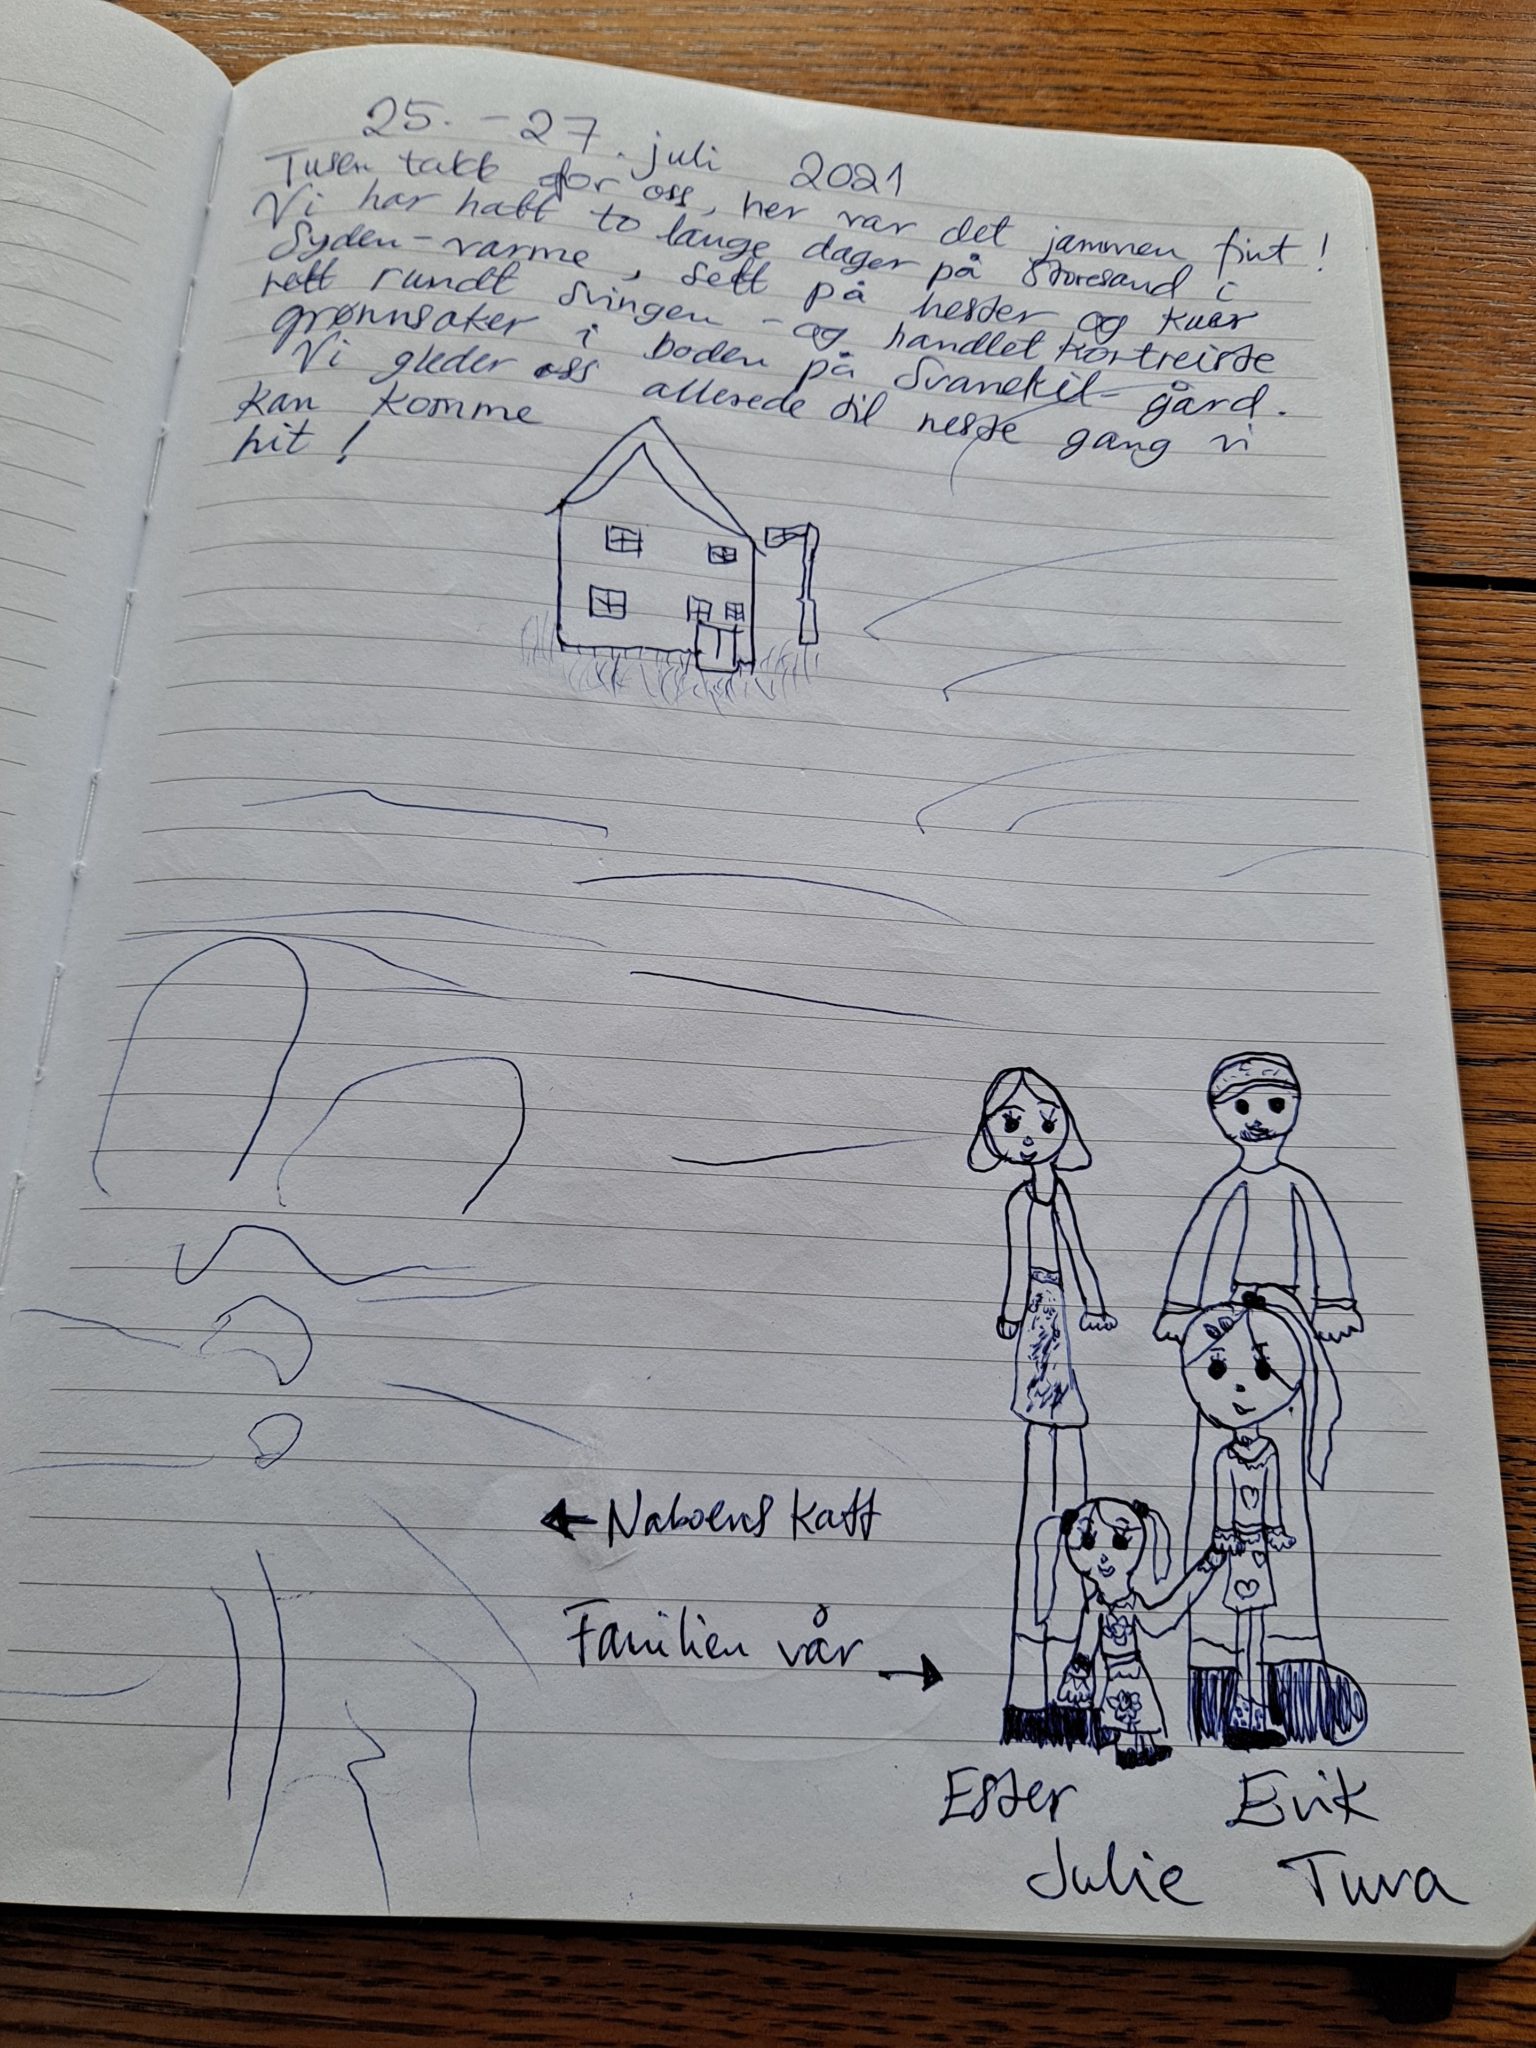 25. - 27. juli 2021
Tusen takk for oss, her var det jammen fint!
Vi har hatt to lange dager på Storesand i
Syden-varme, sett på hester og kuer
rett rundt svingen - og handlet kortreiste
grønnsaker i boden på Svanekil gård.
Vi gleder oss allerede til neste gang vi
kan komme
hit!
← Naboens katt
Familien vår →
Ester Erik
Julie Tuva